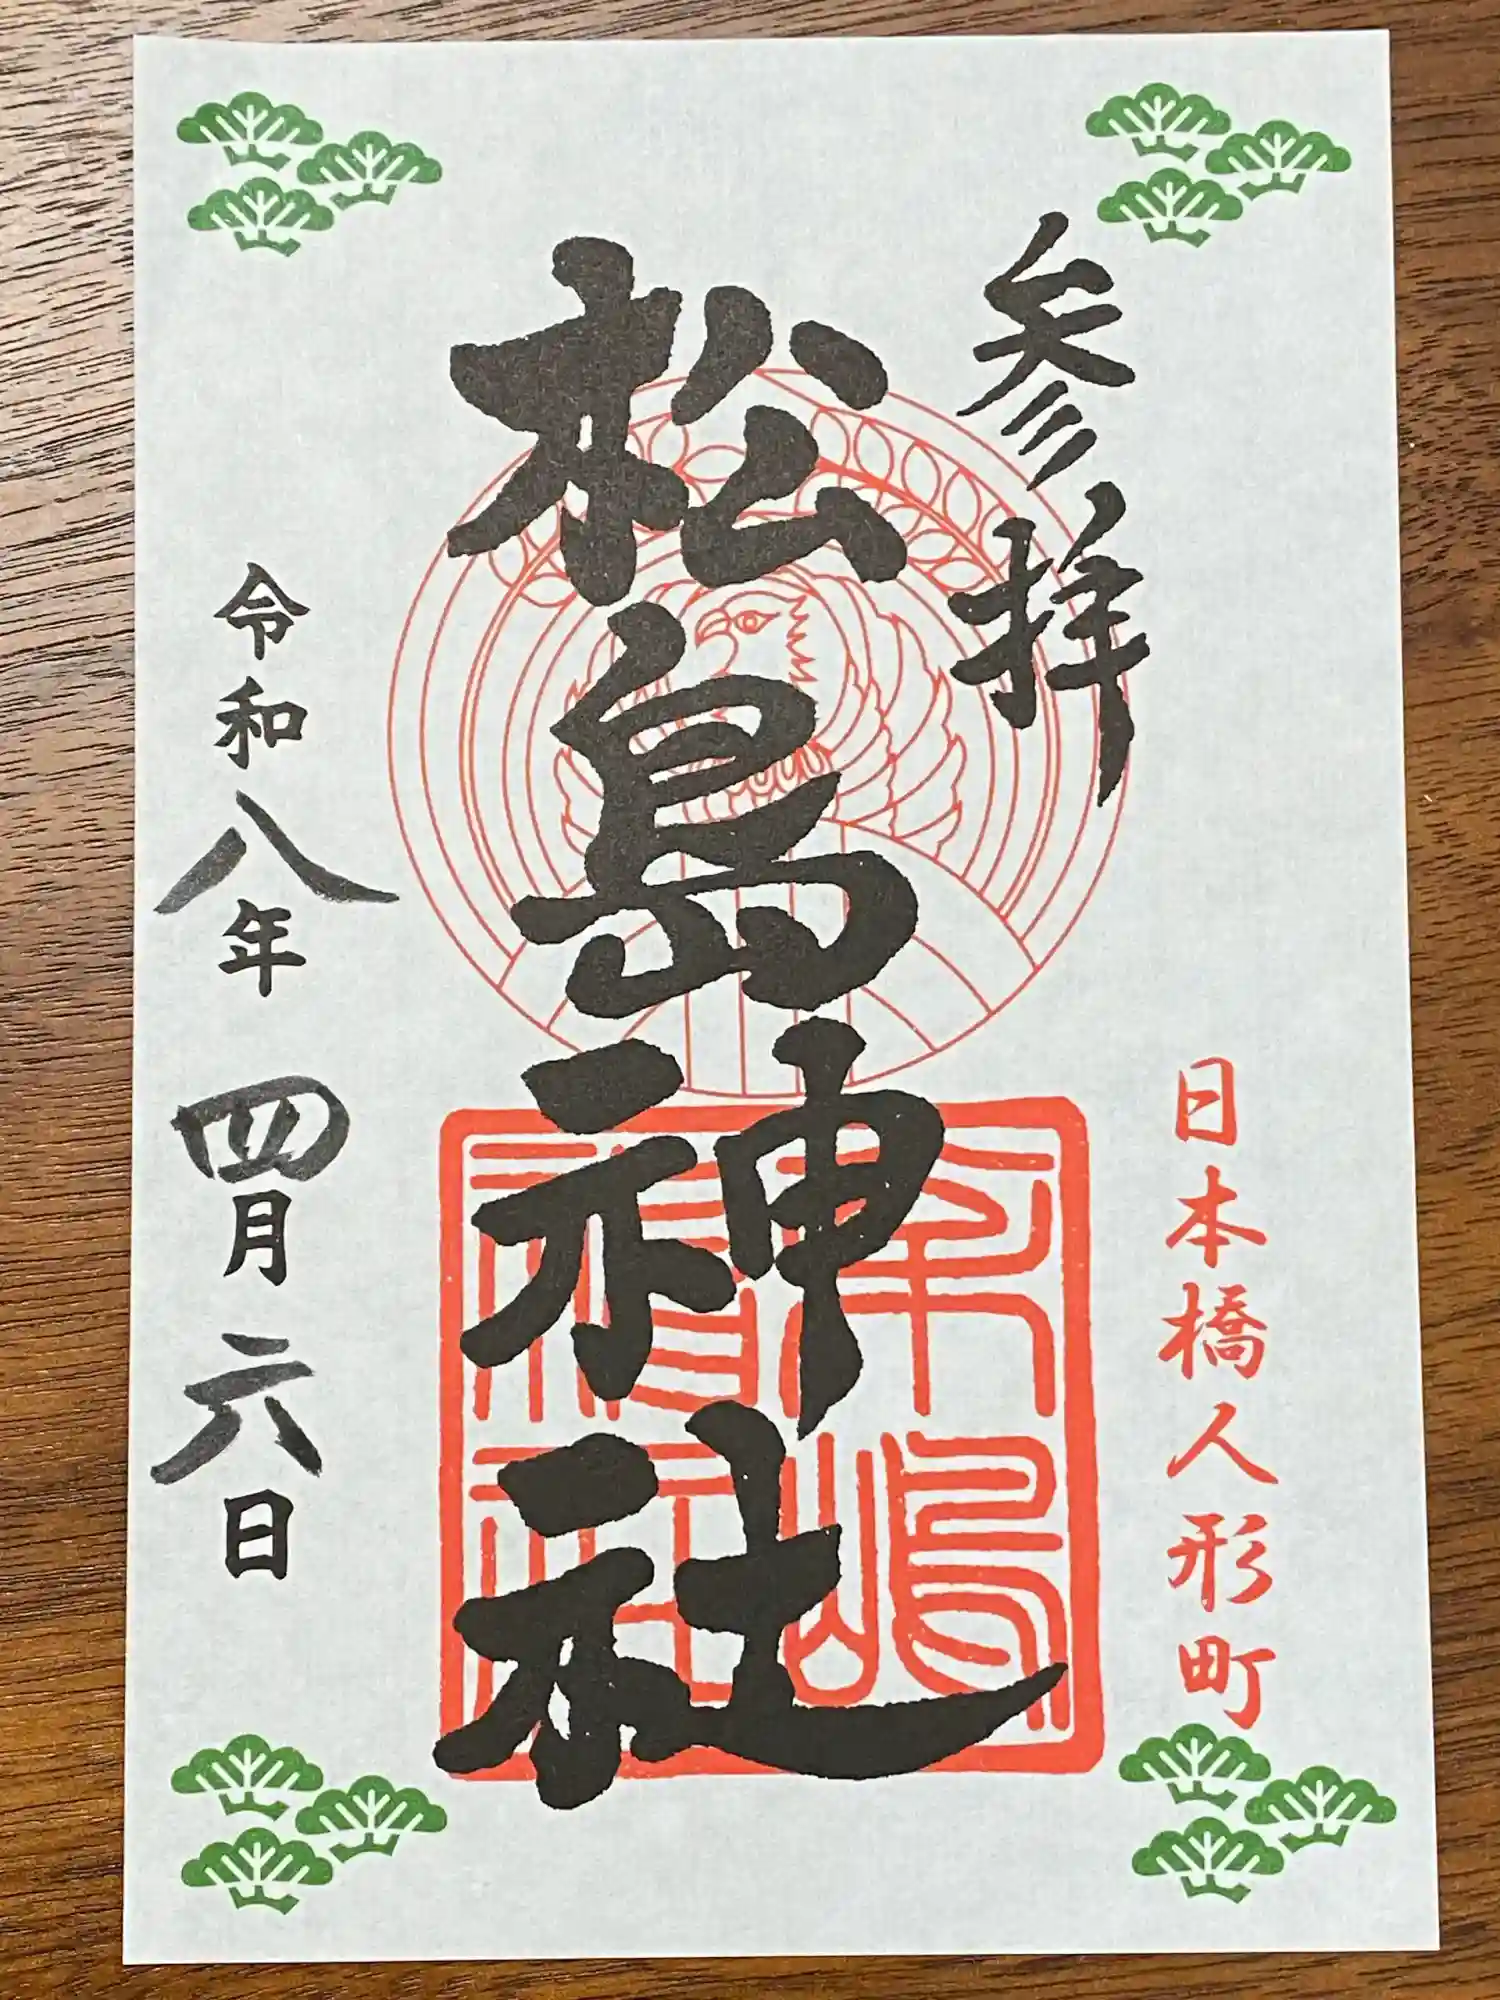 参拝
日本橋人形町
松島神社
令和八年 四月 六日